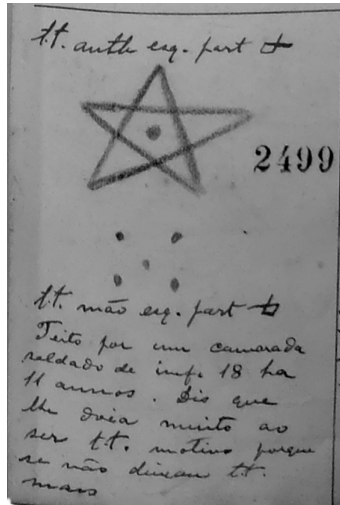 t.t. antb esq. part
2499
t.t. mão esq. part
Feito por um camarada
soldado de inf. 18 ha
11 annos. Dis que
lhe doia muito ao
ser t.t. motivo porque
se não deixou t.t.
mais